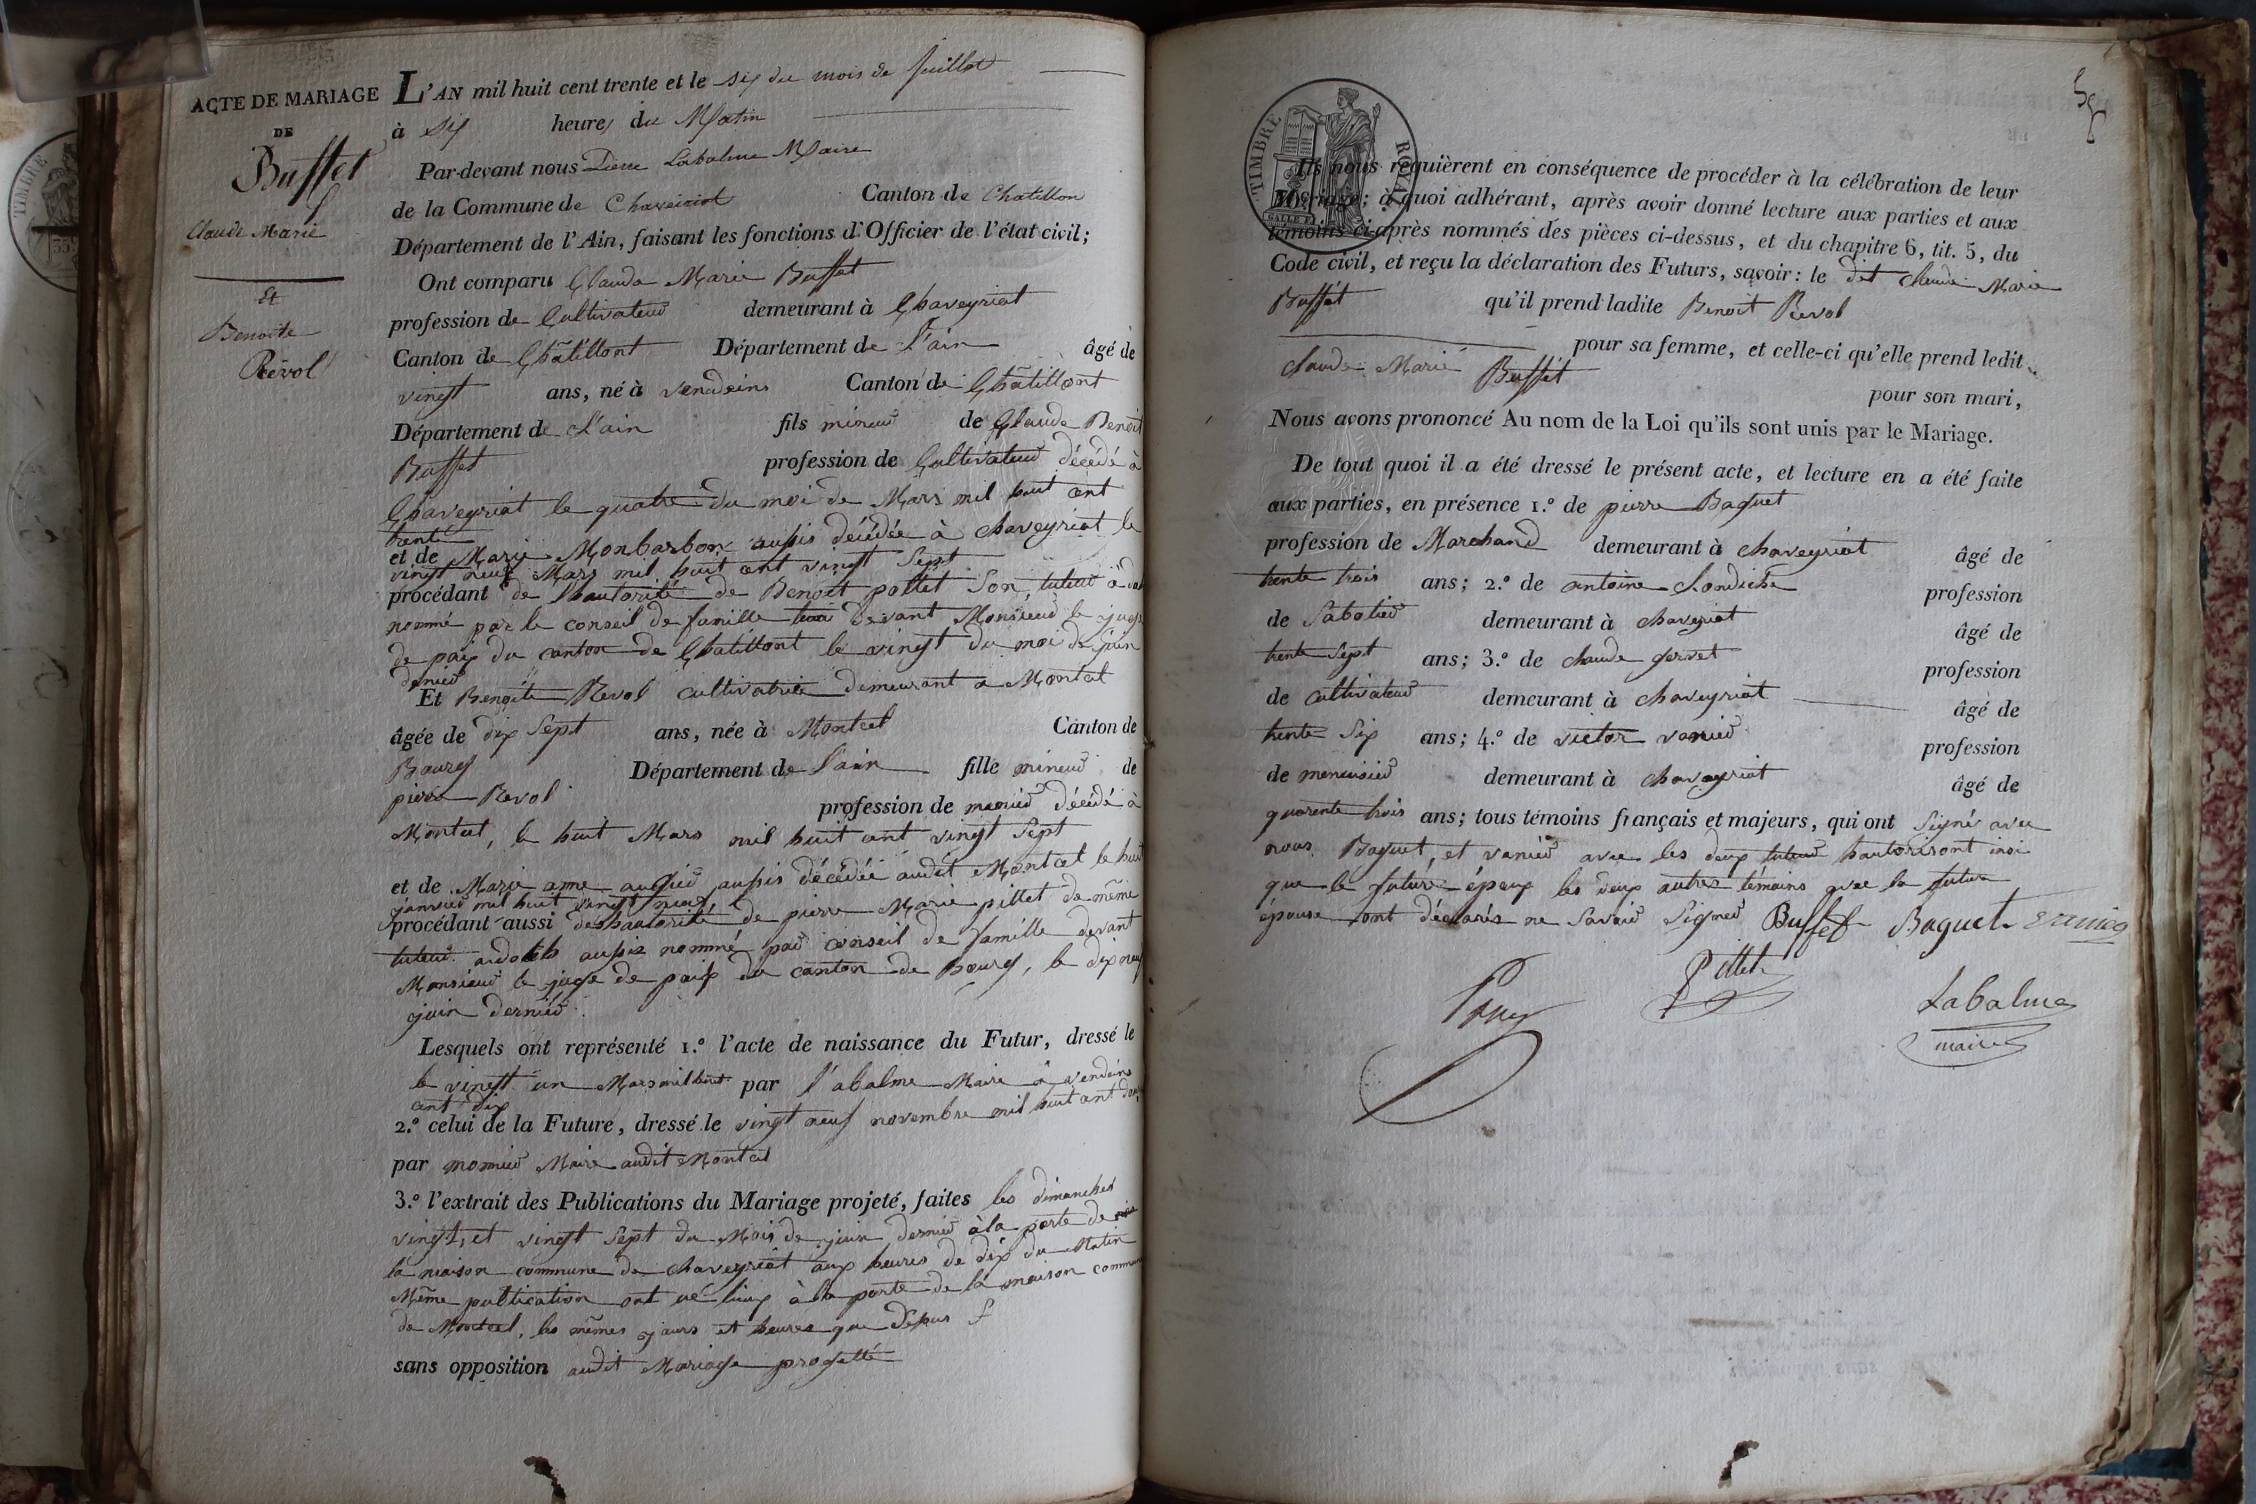 ACTE DE MARIAGE
DE
Buffet
Claude Marie
Et
Benoite
Revol
L'AN mil huit cent trente et le six du mois de juillet
à six heures du Matin
Par-devant nous Pierre Labalme Maire
de la Commune de Chaveiriat Canton de Chatillon
Département de l'Ain, faisant les fonctions d'Officier de l'état civil;
Ont comparu Claude Marie Buffet
profession de Cultivateur demeurant à Chaveyriat
Canton de Châtillont Département de l'ain âgé de
vingt ans, né à vendeins Canton de Châtillont
Département de L'ain fils mineur de Claude Benoit
Buffet profession de Cultivateur décédé à
Chaveyriat le quatre du moi de Mars mil huit cent
trente
et de Marie Monbarbon aussis décédée à chaveyriat le
vingt neuf Mars mil huit cent vingt Sept
procédant de l'hautorité de Benoit pottet Son tuteur
nommé par le conseil de famille devant Monsieur le juge
de paix du canton de Châtillont le vingt du moi de juin
dernier
Et Benoite Revol cultivatrice demeurant a Montcet
âgée de dix Sept ans, née à Montcet Canton de
Bourg Département de l'ain fille mineur de
pierre Revol profession de décédé à
Montcet, le huit Mars mil huit cent vingt Sept
et de Marie anne aussis décédée audit Montcet le huit
janvier mil huit vingt neuf,
procédant aussi de hautorité de pierre Marie pillet de même
tuteur aussis nommé par conseil de famille devant
Monsieur le juge de paix du canton de Bourg, le dix neuf
juin dernier.
Lesquels ont représenté 1.º l'acte de naissance du Futur, dressé le
le vingt un Mars mil huit par l'abalme Maire à vendeins
cent dix
2.º celui de la Future, dressé le vingt neuf novembre mil huit cent
par monnier Maire audit Montcet
3.º l'extrait des Publications du Mariage projeté, faites les dimanches
vingt, et vingt Sept du Mois de juin dernier à la porte de
la maison commune de chaveyriat aux heures de dix du Matin
Même publication ont à la porte de la maison commune
de Montcet, les mêmes jours et heures que
sans opposition audit Mariage progetté
TIMBRE ROYAL
Ils nous requièrent en conséquence de procéder à la célébration de leur
Mariage; à quoi adhérant, après avoir donné lecture aux parties et aux
témoins ci-après nommés des pièces ci-dessus, et du chapitre 6, tit. 5, du
Code civil, et reçu la déclaration des Futurs, savoir: le dit claude Marie
Buffet qu'il prend ladite Benoit Revol
pour sa femme, et celle-ci qu'elle prend ledit
claude Marie Buffet
pour son mari,
Nous avons prononcé Au nom de la Loi qu'ils sont unis par le Mariage.
De tout quoi il a été dressé le présent acte, et lecture en a été faite
aux parties, en présence 1.º de pierre Baguet
profession de Marchand demeurant à chaveyriat âgé de
trente trois ans; 2.º de antoine profession
de Sabotier demeurant à chaveyriat âgé de
trente Sept ans; 3.º de claude profession
de cultivateur demeurant à chaveyriat âgé de
trente Six ans; 4.º de victor vanier profession
de menuisier demeurant à chaveyriat âgé de
quarente trois ans; tous témoins français et majeurs, qui ont Signé avec
nous Baguet, et vanier avec les deux tuteur hautorisont insi
que le future épeux les deux autres témoins avec la future
épouse ont déclarés ne Savoir Signer Buffet Baguet
Pillet
Labalme
maire